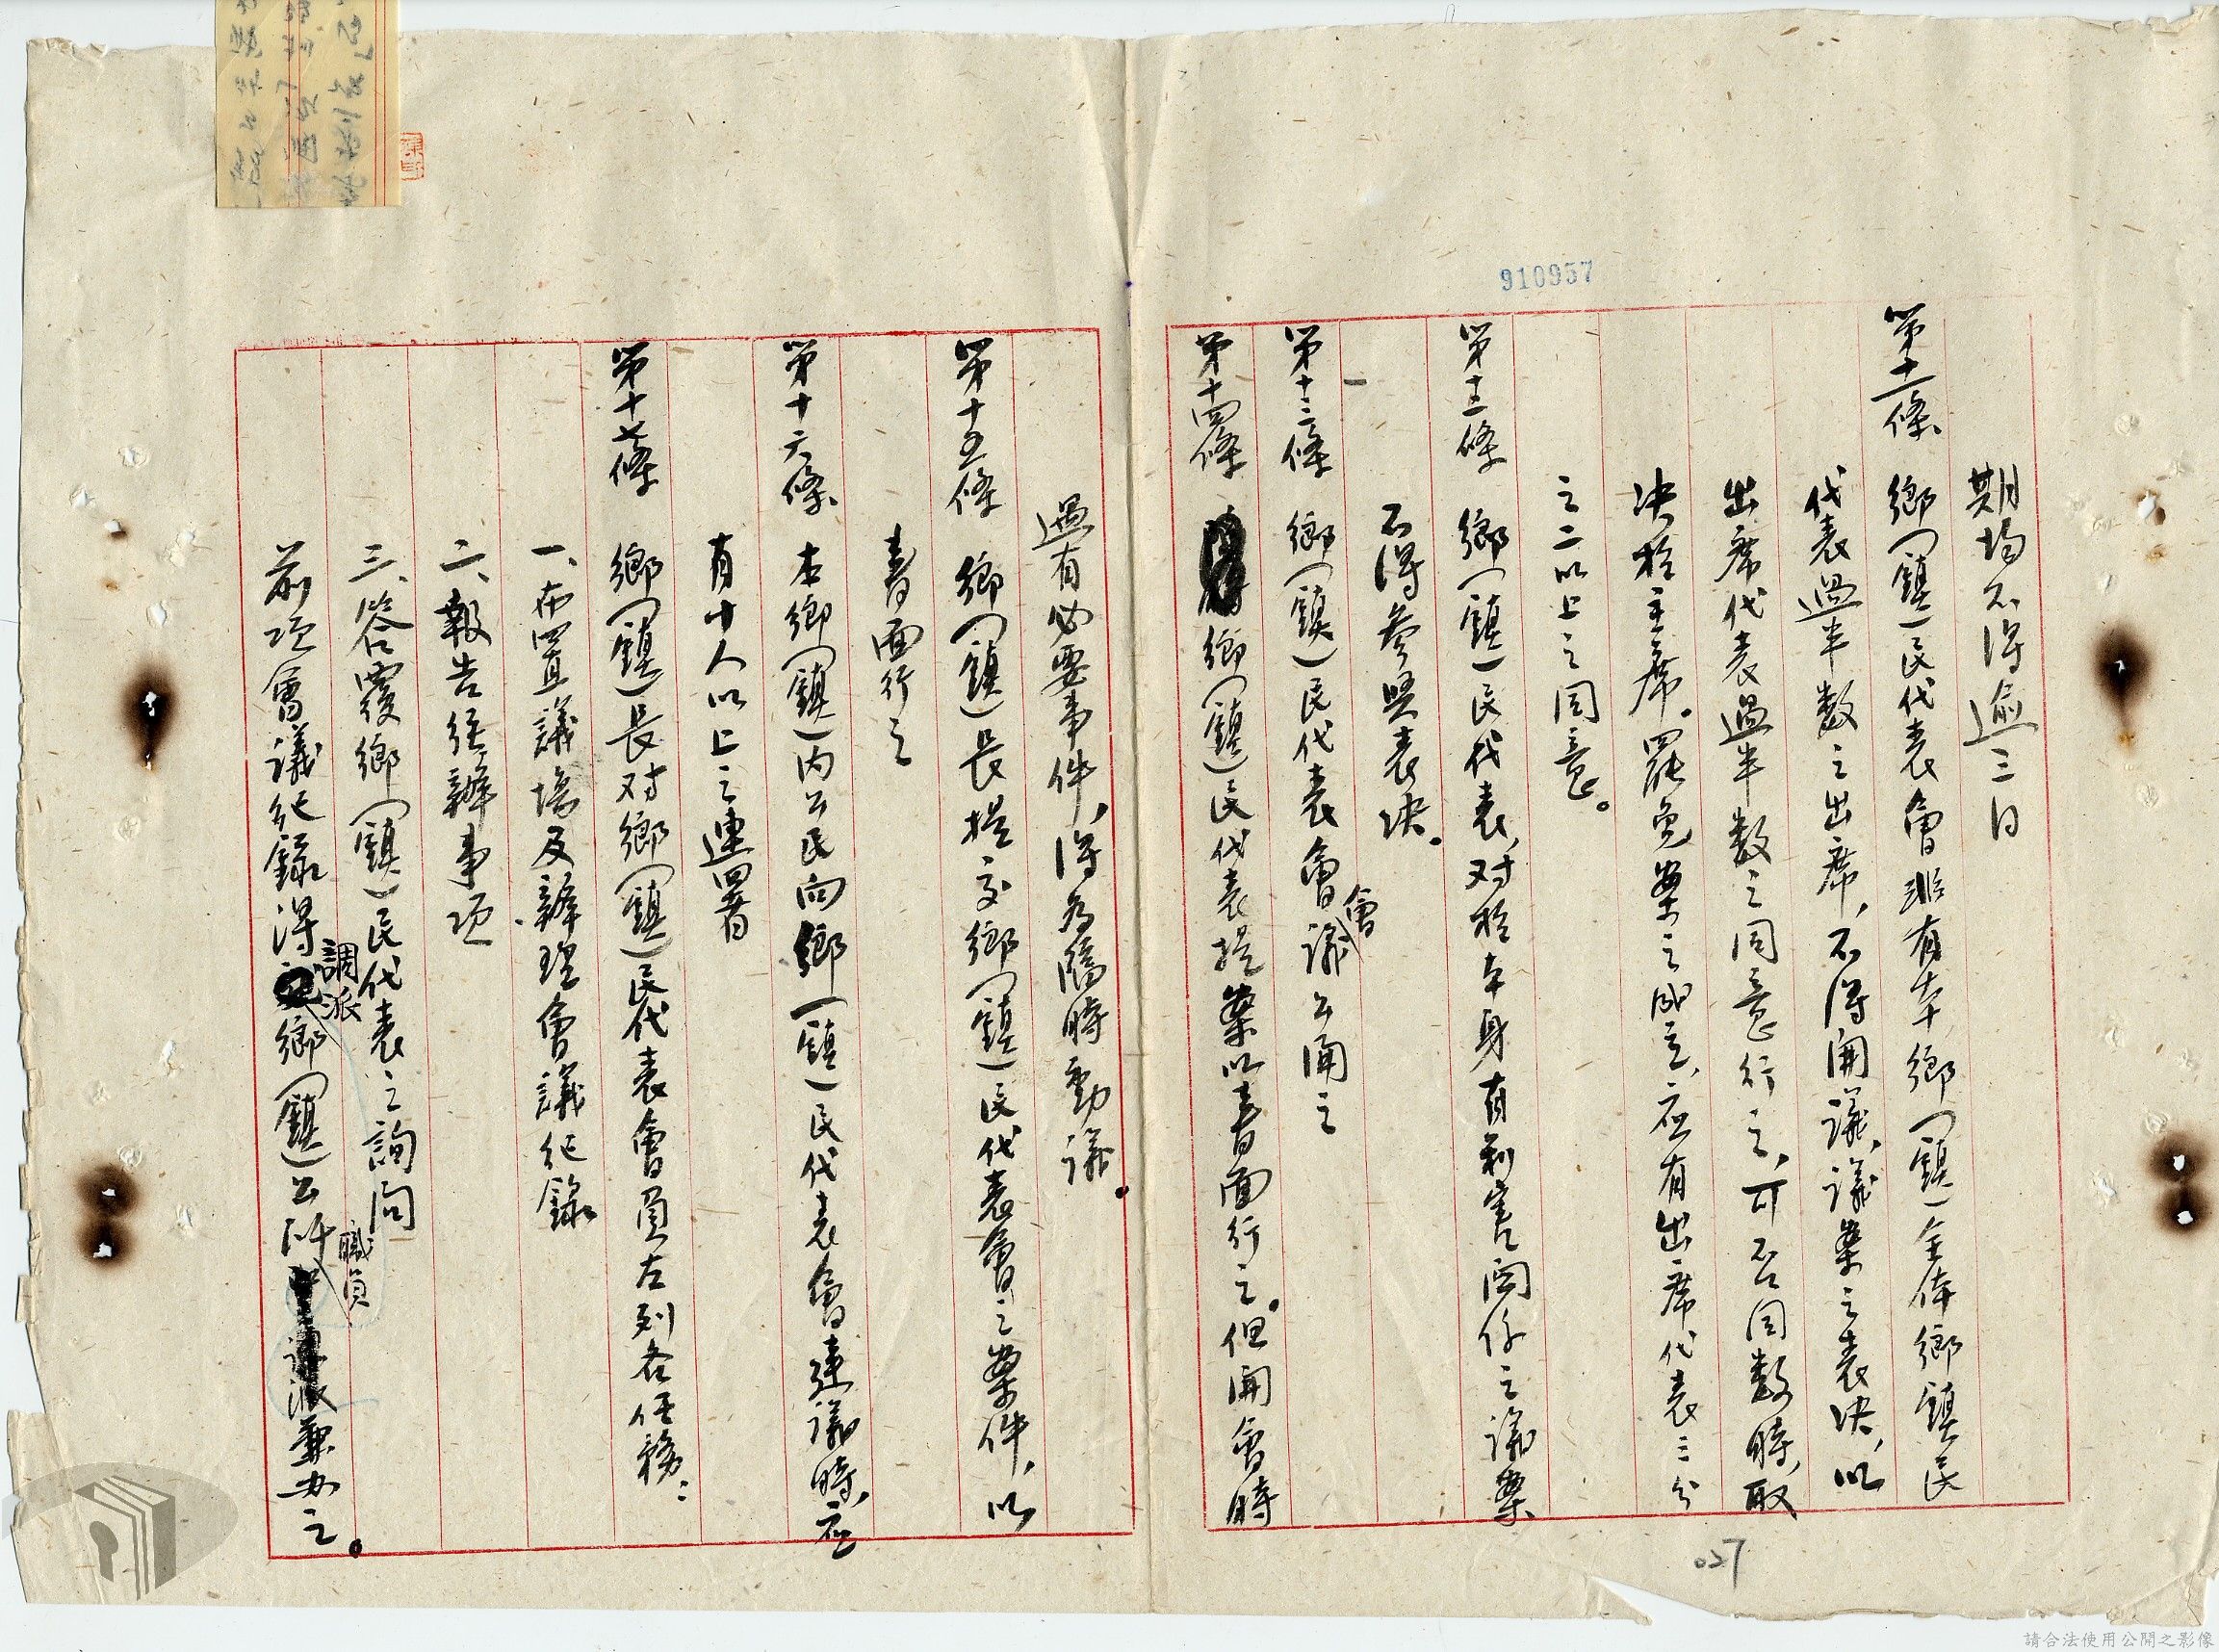 910957
期均不得逾三日
第十一條 鄉(鎮)民代表會非有本鄉(鎮)全体鄉鎮民
代表過半數之出席,不得開議,議案之表决,以
出席代表過半數之同意行之,可否同數時,取
决於主席。罷免案之成立,应有出席代表三分
之二以上之同意。
第十二條 鄉(鎮)民代表,对於本身有利害関係之議案
不得參與表决。
第十三條 鄉(鎮)民代表會會議公開之
第十四條 鄉(鎮)民代表提案以書面行之。但開會時
遇有必要事件,得為臨時動議。
第十五條 鄉(鎮)長提交鄉(鎮)民代表會之案件,以
書面行之
第十六條 本鄉(鎮)内公民向鄉(鎮)民代表會建議時,应
有十人以上之連署
第十七條 鄉(鎮)長对鄉(鎮)民代表會負左列各任務:
一、布置議場及辦理會議紀錄
二、報告經辦事項
三、答覆鄉(鎮)民代表之詢问
前項會議紀錄得調派鄉(鎮)公所職員兼办之。
027
請合法使用公開之影像